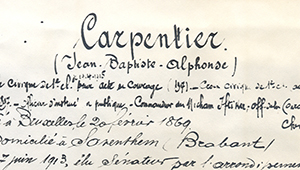 Carpentier.
(Jean-Baptiste-Alphonse)
Civique de 1re cl. pour acte de courage (19 Croix Civique de 1re cl.
publique - Commandeur du Nicham Iftikar - off. de
à Bruxelles le 20 février 1869
domicilié à Saventhem (Brabant)
juin 1913, élu Sénateur par l'arrondissement